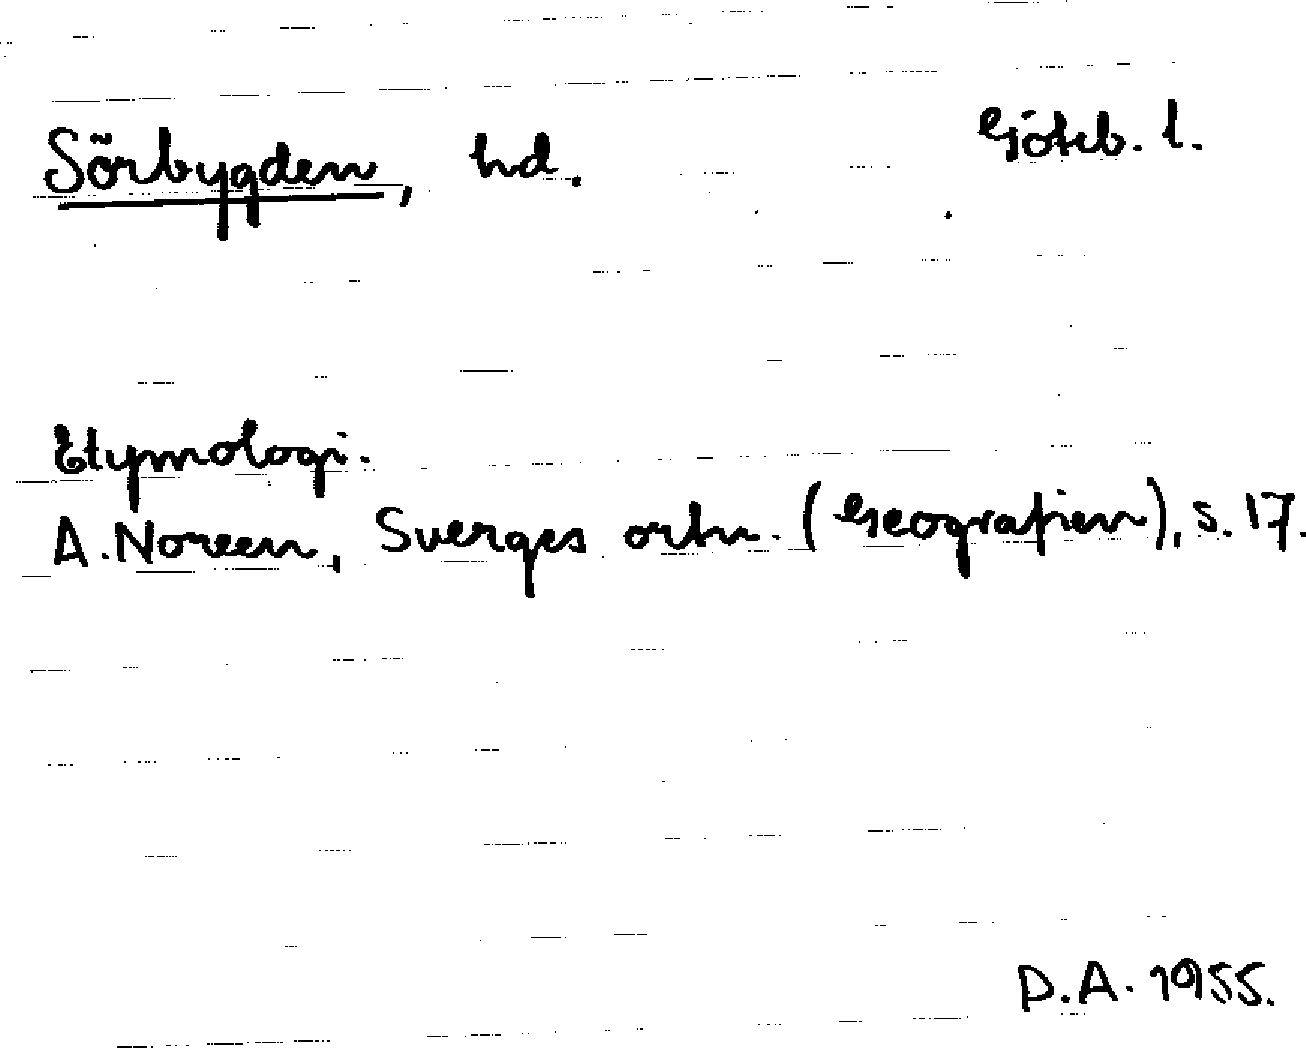 Sörbygden, hd. Göteb. l.
Etymologi.
A. Noreen, Sverges ortn. (Geografien), s. 17.
D.A. 1955.